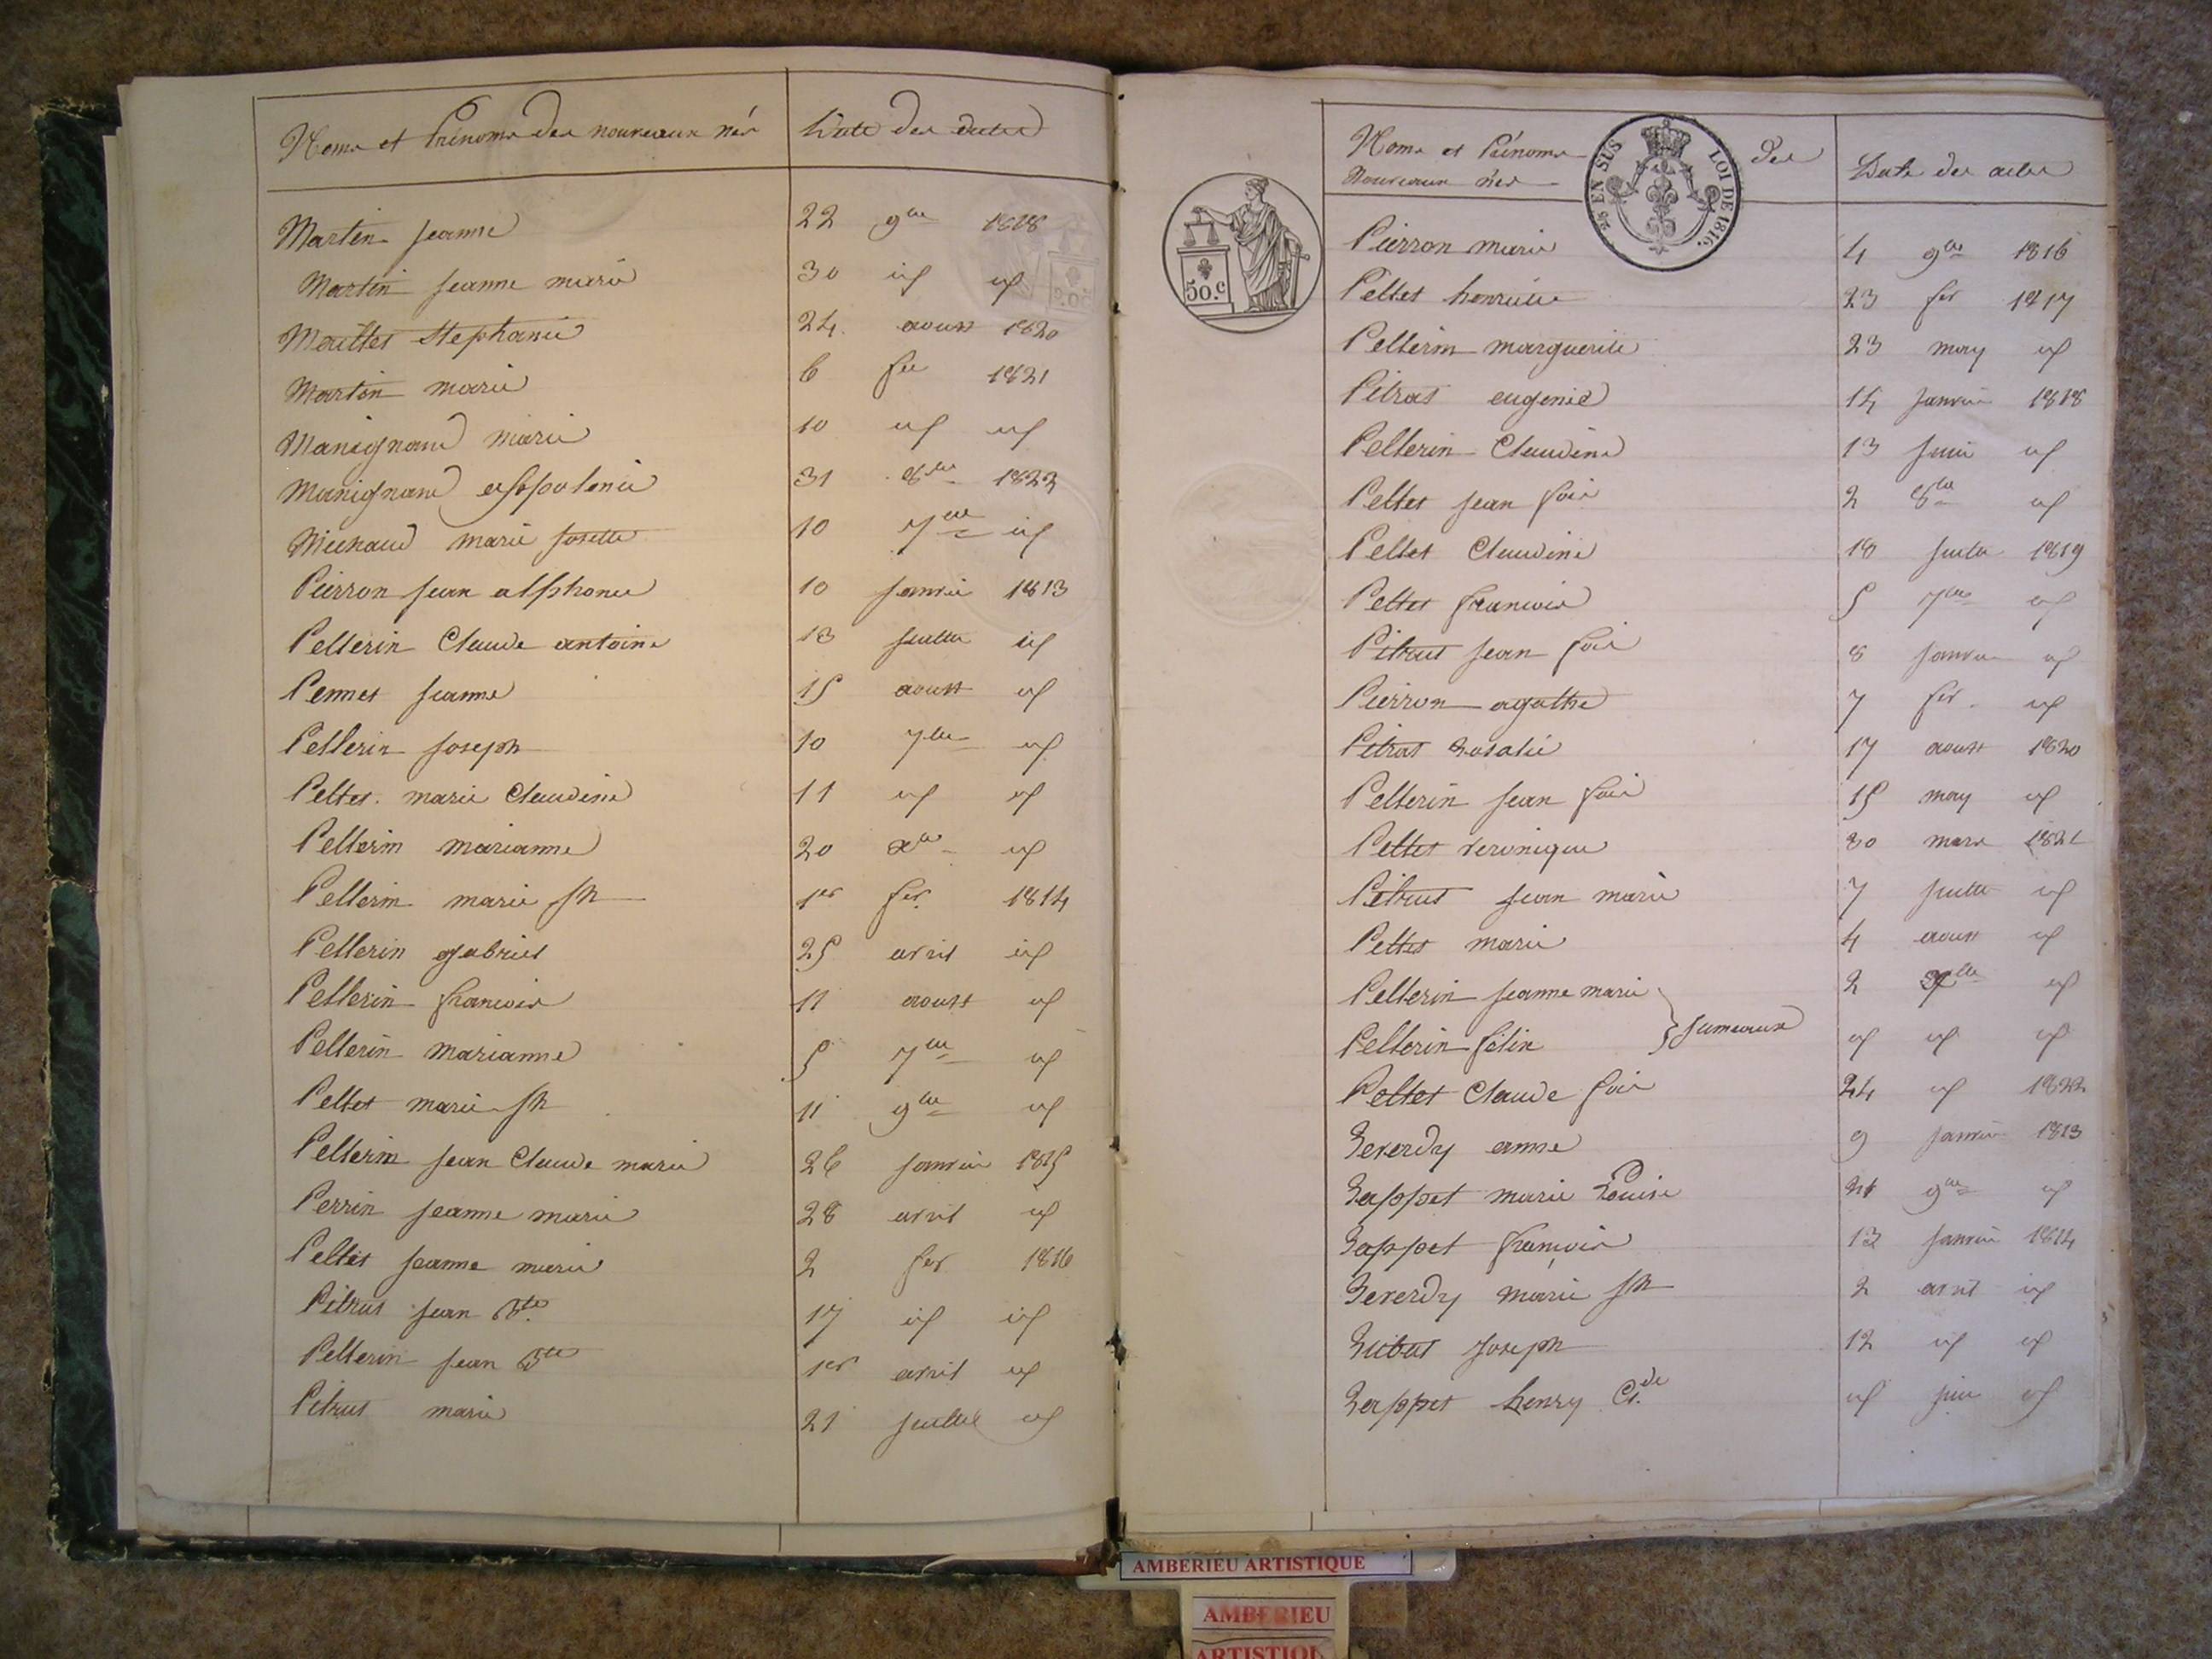 Noms et Prénoms des nouveaux nés Date des actes
Martin jeanne 22 9bre 1818
Martin jeanne marie 30 id id
Mouttet Stephanie 24 aoust 1820
Martin marie 6 fer 1821
Manignand marie 10 id id
Manignand appolonie 31 8bre 1822
Michaud marie josette 10 7bre id
Pierron jean alphonse 10 janvier 1813
Pellerin Claude antoine 13 juillet id
Pennet jeanne 15 aoust id
Pellerin joseph 10 7bre id
Peltet marie Claudine 11 id id
Pellerin marianne 20 Xbre id
Pellerin marie jh 1er fer 1814
Pellerin gabriel 25 avril id
Pellerin francois 11 aoust id
Pellerin marianne 5 7bre id
Peltet marie jh 11 9bre id
Pellerin jean Claude marie 26 janvier 1815
Perrin jeanne marie 28 avril id
Peltet jeanne marie 2 fer 1816
Pitrat jean Bte 17 id id
Pellerin jean Bte 1er avril id
Pitrat marie 21 juillet id
Noms et Prénoms des
Nouveaux nés Date des actes
25 EN SUS LOI DE 1816.
50.c
Pierron marie 4 9bre 1816
Peltet henriette 23 fer 1817
Pellerin marguerite 23 may id
Pitrat eugenie 14 janvier 1818
Pellerin Claudine 13 juin id
Peltet jean fois 2 8bre id
Peltet Claudine 18 juillet 1819
Peltet francois 5 7bre id
Pitrat jean fois 8 janvier id
Pierron agathe 7 fer id
Pitrat Rosalie 17 aoust 1820
Pellerin jean fois 15 may id
Peltet veronique 30 mars 1821
Pitrat jean marie 7 juillet id
Peltet marie 4 aoust id
Pellerin jeanne marie 2 id
Pellerin félix jumeaux id id id
Peltet Claude fois 24 id 1822
Reverdy anne 9 janvier 1813
Rappet marie Louise 21 9bre id
Rappet francois 13 janvier 1814
Reverdy marie jh 2 avril id
Joseph 12 id id
Rappet henry Cl.de id juin id
AMBERIEU ARTISTIQUE
AMBERIEU